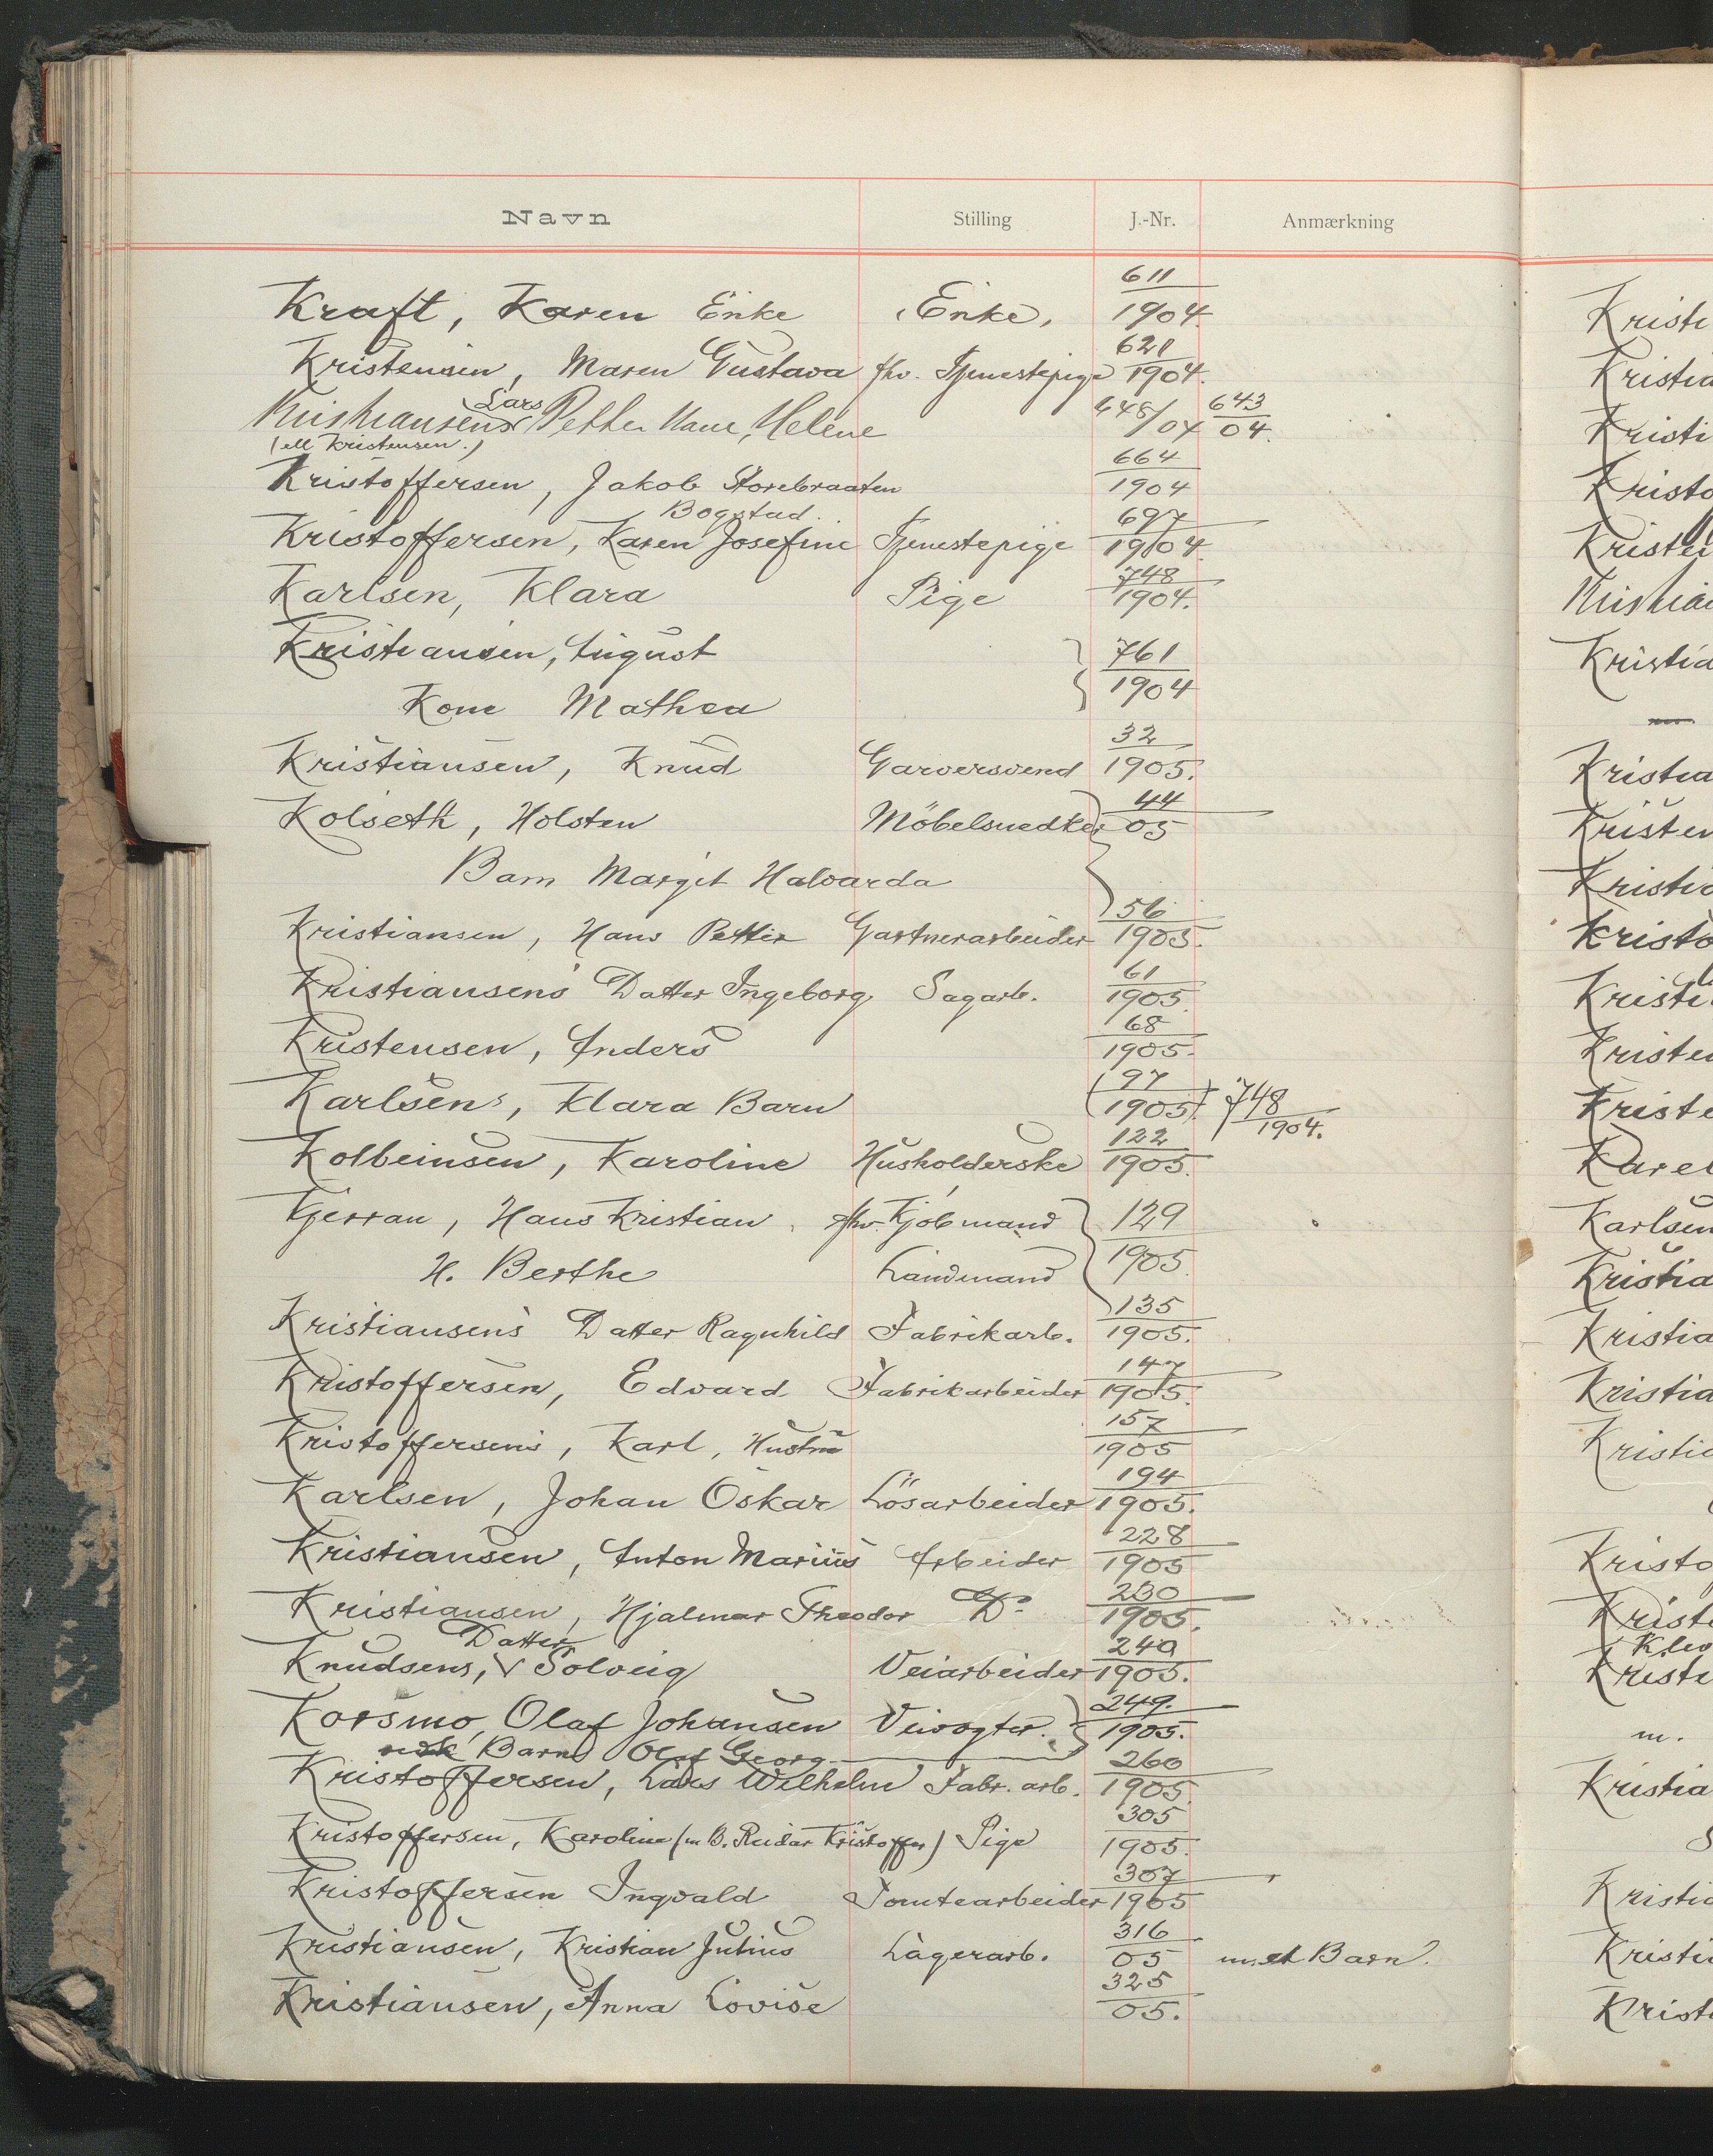 Navn Stilling J.-Nr. Anmærkning
Kraft, Karen Enke Enke. 611/1904
Kristensen, Maren Gustava fhv. Tjenestepige 621/1904.
Kristiansens Lars Petter Hane, Helene 648/04 643/04.
(ell Kristensen.)
Kristoffersen, Jakob Storebraaten 664/1904
Bogstad.
Kristoffersen, Karen Josefine Tjenestepige 697/1904
Karlsen, Klara Pige 748/1904.
Kristiansen, August 761/1904
Kone Mathea
Kristiansen, Knud Garversvend 32/1905.
Kolseth, Holsten Möbelsnedker 44/05
Barn Margit Halvarda
Kristiansen, Hans Petter Gartnerarbeider 56/1905.
Kristiansens Datter Ingeborg Sagarb. 61/1905
Kristensen, Anders 68/1905.
Karlsens, Klara Barn (97/1905). 748/1904.
Kolbeinsen, Karoline Husholderske 122/1905.
Kjerran, Hans Kristian fhv. Kjöbmand 129/1905
H. Berthe Landmand
Kristiansens Datter Ragnhild Fabrikarb. 135/1905.
Kristoffersen, Edvard Fabrikarbeider 147/1905.
Kristoffersens, Karl, Hustru 157/1905
Karlsen, Johan Oskar Lösarbeider 194/1905.
Kristiansen, Anton Marius Arbeider 228/1905
Kristiansen, Hjalmar Theodor Do 230/1905.
Datter
Knudsens, V Solveig Veiarbeider 240/1905.
Korsmo, Olaf Johansen Veivogter. 249./1905.
Barn Olaf Georg
Kristoffersen, Lars Wilhelm Fabr. arb. 260/1905
Kristoffersen, Karoline (m B. Reidar Kristoffer) Pige 305/1905.
Kristoffersen Ingvald Tomtearbeider 307/1905
Kristiansen, Kristian Julius Lagerarb. 316/05 m. et Barn.
Kristiansen, Anna Lovise 325/05.